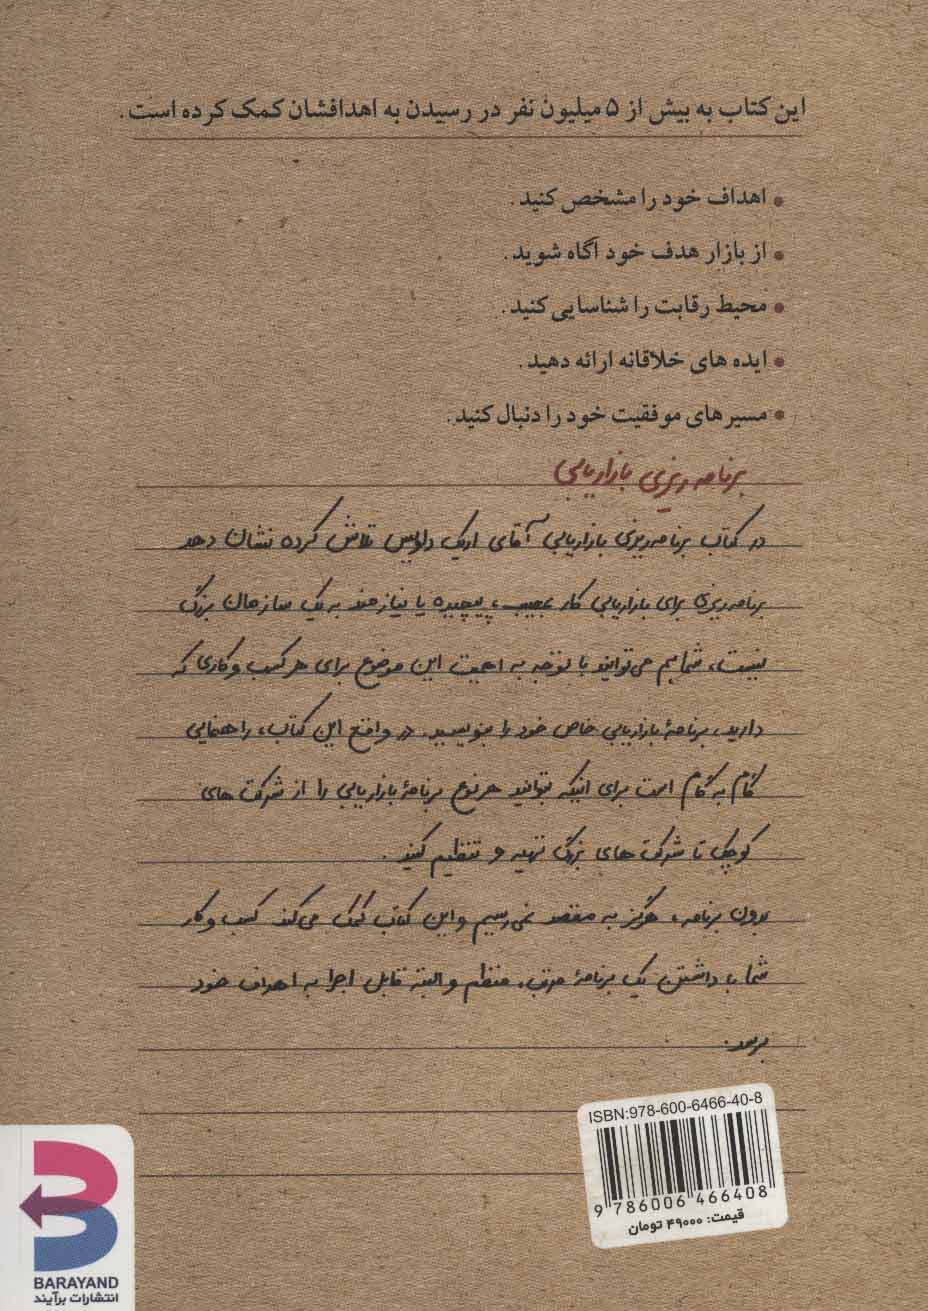 این کتاب به بیش از ۵ میلیون نفر در رسیدن به اهدافشان کمک کرده است.
• اهداف خود را مشخص کنید.
• از بازار هدف خود آگاه شوید.
• محیط رقابت را شناسایی کنید.
• ایده های خلاقانه ارائه دهید.
• مسیرهای موفقیت خود را دنبال کنید.
برنامه ریزی بازاریابی
در کتاب برنامه‌ریزی بازاریابی آقای اریک داویس تلاش کرده نشان دهد
برنامه‌ریزی برای بازاریابی کار عجیب، پیچیده یا نیازمند به یک سازمان بزرگ
نیست، شما هم می‌توانید با توجه به اهمیت این موضوع برای هر کسب و کاری که
دارید، برنامهٔ بازاریابی خاص خود را بنویسید. در واقع این کتاب، راهنمایی
گام به گام است برای اینکه بتوانید هر نوع برنامهٔ بازاریابی را از شرکت های
کوچک تا شرکت های بزرگ تهیه و تنظیم کنید.
بدون برنامه، هرگز به مقصد نمی‌رسیم و این کتاب کمک می‌کند کسب و کار
شما با داشتن یک برنامهٔ مرتب، منظم و البته قابل اجرا به اهداف خود
برسد.
ISBN:978-600-6466-40-8
9 786006 466408
قیمت: ۴۹۰۰۰ تومان
BARAYAND
انتشارات برآیند